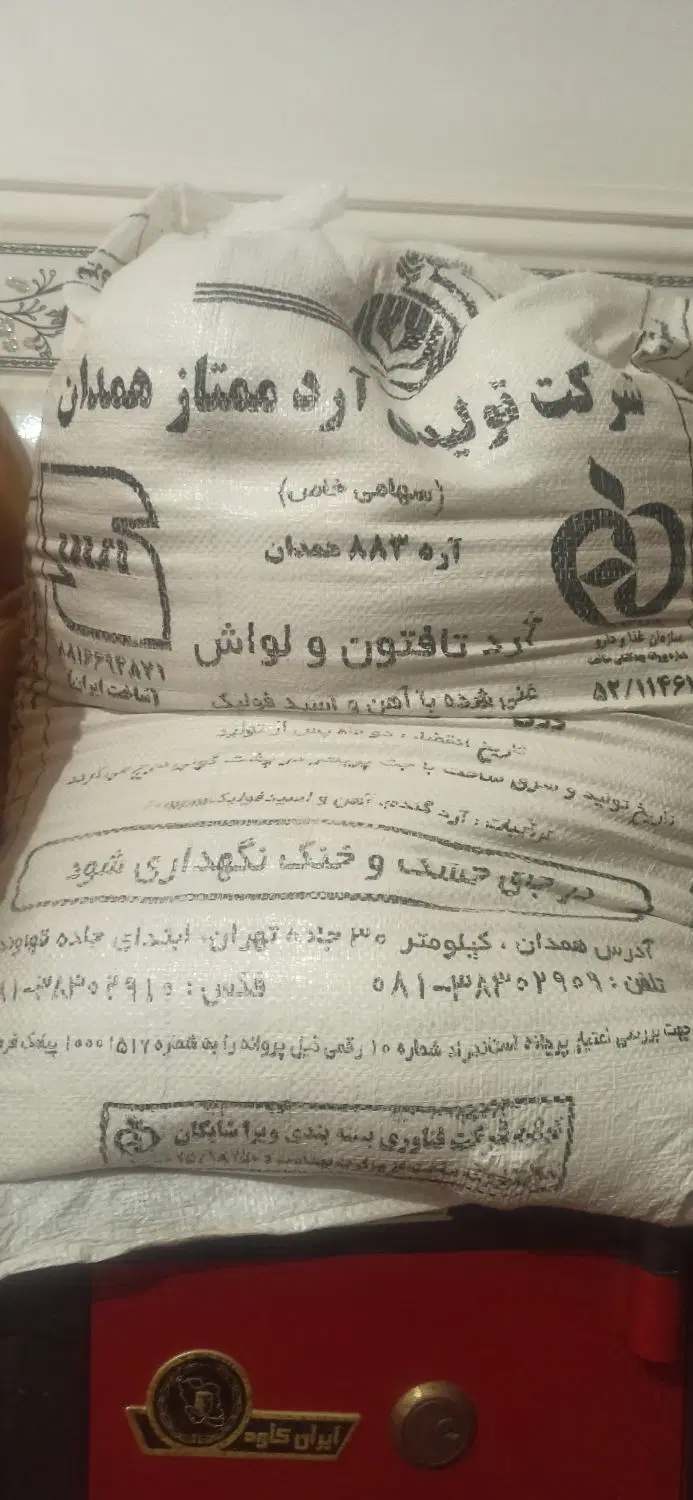 شرکت تولیدی آرد ممتاز همدان
(سهامی خاص)
آرد ۸۸۳ همدان
آرد تافتون و لواش
غنی شده با آهن و اسید فولیک
سازمان غذا و دارو
۵۲/۱۱۴۶۱
(ساخت ایران)
تاریخ انقضاء : دو ماه پس از تولید
تاریخ تولید و سری ساخت با جت پرینتر در پشت گونی درج می گردد
ترکیبات : آرد گندم، آهن و اسیدفولیک
در جای خشک و خنک نگهداری شود
آدرس همدان ، کیلومتر ۳۰ جاده تهران، ابتدای جاده قهاوند
تلفن : ۳۸۳۰۲۹۰۹-۰۸۱
فکس :
جهت بررسی اعتبار پروانه استاندارد شماره ۱۰ رقمی ذیل پروانه را به شماره ۱۰۰۰۱۵۱۷ پیامک
شرکت فناوری بسته بندی ویرا شایگان
ایران کاوه